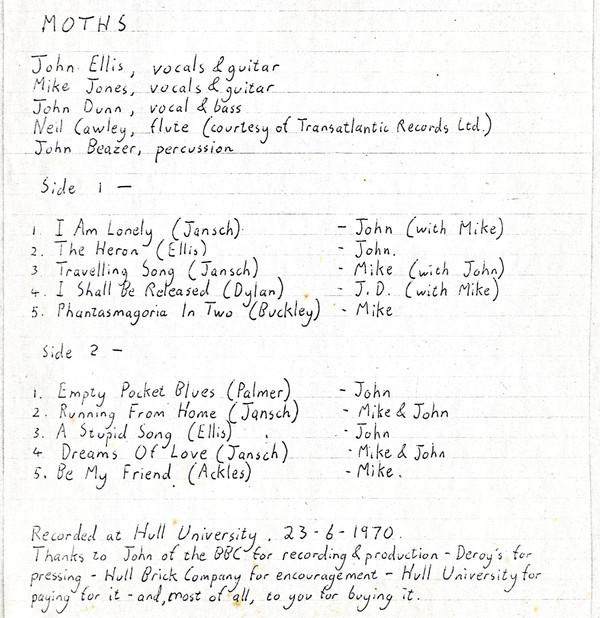 MOTHS
John Ellis, vocals & guitar
Mike Jones, vocals & guitar
John Dunn, vocal & bass
Neil Cawley, flute (courtesy of Transatlantic Records Ltd.)
John Beazer, percussion
Side 1 -
1. I Am Lonely (Jansch) - John (with Mike)
2. The Heron (Ellis) - John.
3 Travelling Song (Jansch) - Mike (with John)
4. I Shall Be Released (Dylan) - J.D. (with Mike)
5. Phantasmagoria In Two (Buckley) - Mike
Side 2 -
1. Empty Pocket Blues (Palmer) - John
2. Running From Home (Jansch) - Mike & John
3. A Stupid Song (Ellis) - John
4 Dreams Of Love (Jansch) - Mike & John
5. Be My Friend (Ackles) - Mike.
Recorded at Hull University. 23-6-1970.
Thanks to John of the BBC for recording & production - Deroy's for
pressing - Hull Brick Company for encouragement - Hull University for
paying for it - and, most of all, to you for buying it.